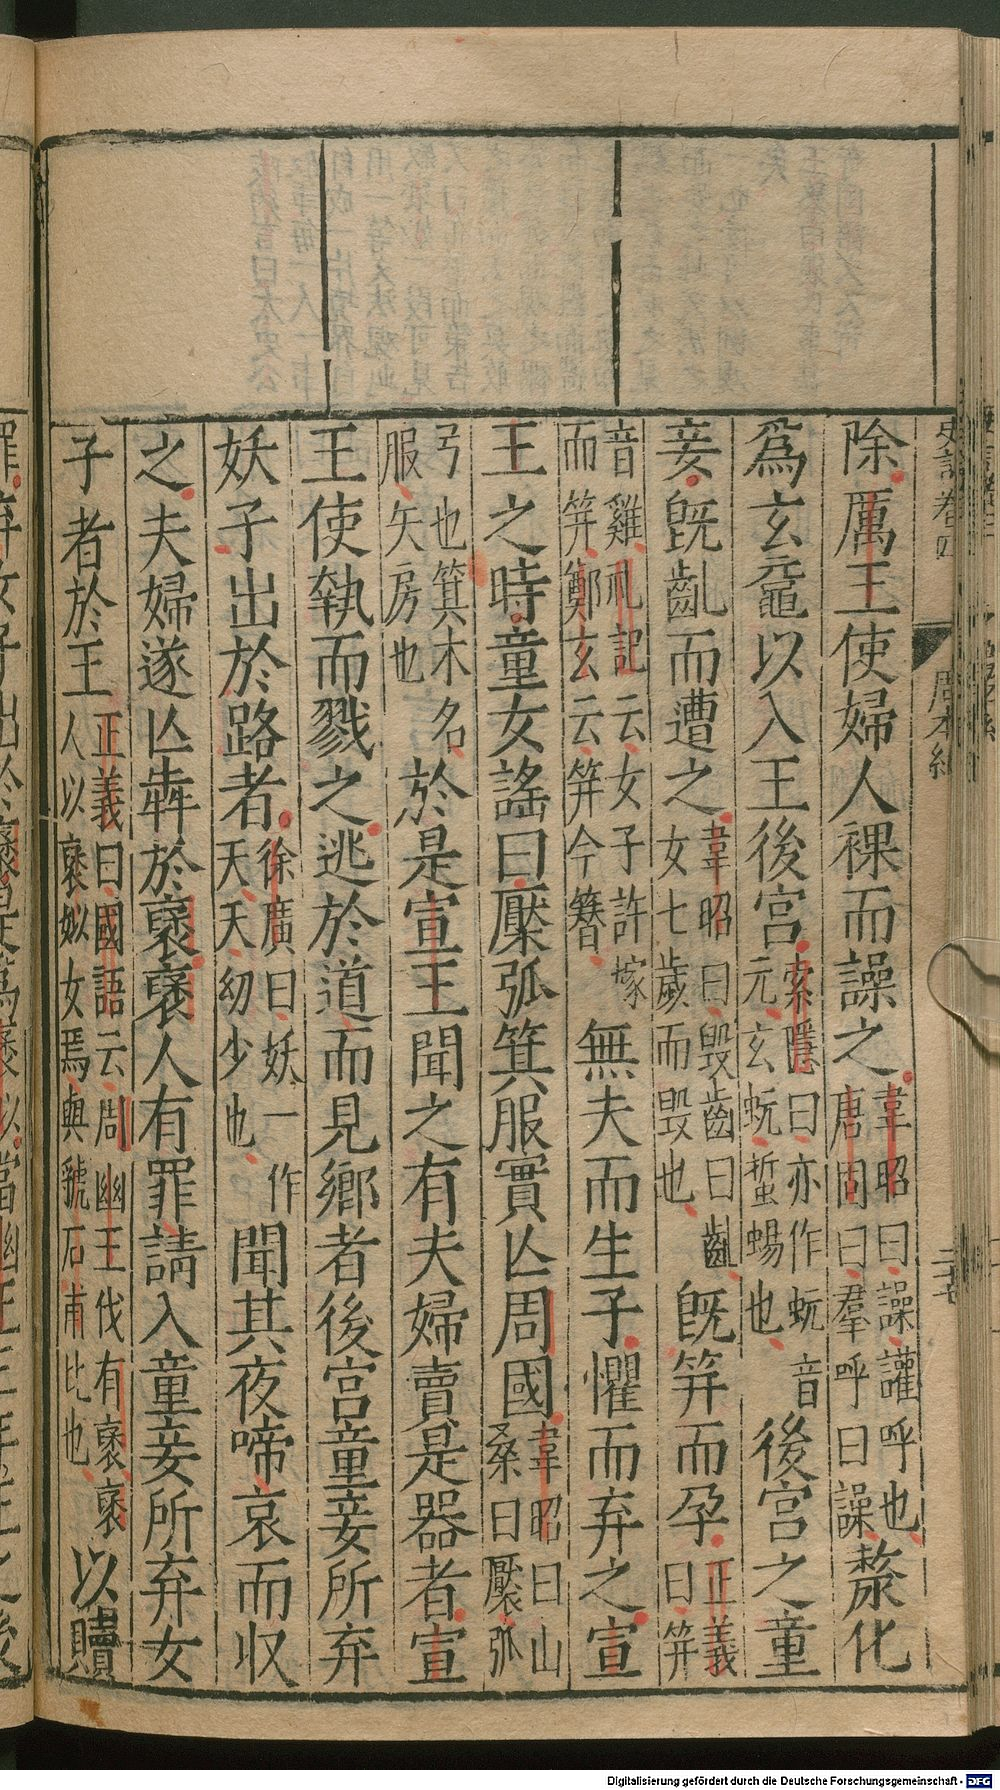 史記卷四 周本紀
除厲王使婦人裸而譟之韋昭曰譟讙呼也唐固曰羣呼曰譟漦化
爲玄黿以入王後宮索隱曰亦作蚖音元玄蚖蜥蜴也後宮之童
妾既齔而遭之韋昭曰毀齒曰齔女七歲而毀也既筓而孕正義曰筓
音雞礼記云女子許嫁而筓鄭玄云筓今簪無夫而生子懼而弃之宣
王之時童女謠曰檿弧箕服實亾周國韋昭曰山桑曰檿弧
弓也箕木名服矢房也於是宣王聞之有夫婦賣是器者宣
王使執而戮之逃於道而見鄉者後宮童妾所弃
妖子出於路者徐廣曰妖一作夭夭幼少也聞其夜啼哀而収
之夫婦遂亾犇於褒褒人有罪請入童妾所弃女
子者於王正義曰國語云周幽王伐有褒褒人以褒姒女焉與虢石甫比也以贖
Digitalisierung gefördert durch die Deutsche Forschungsgemeinschaft - DFG